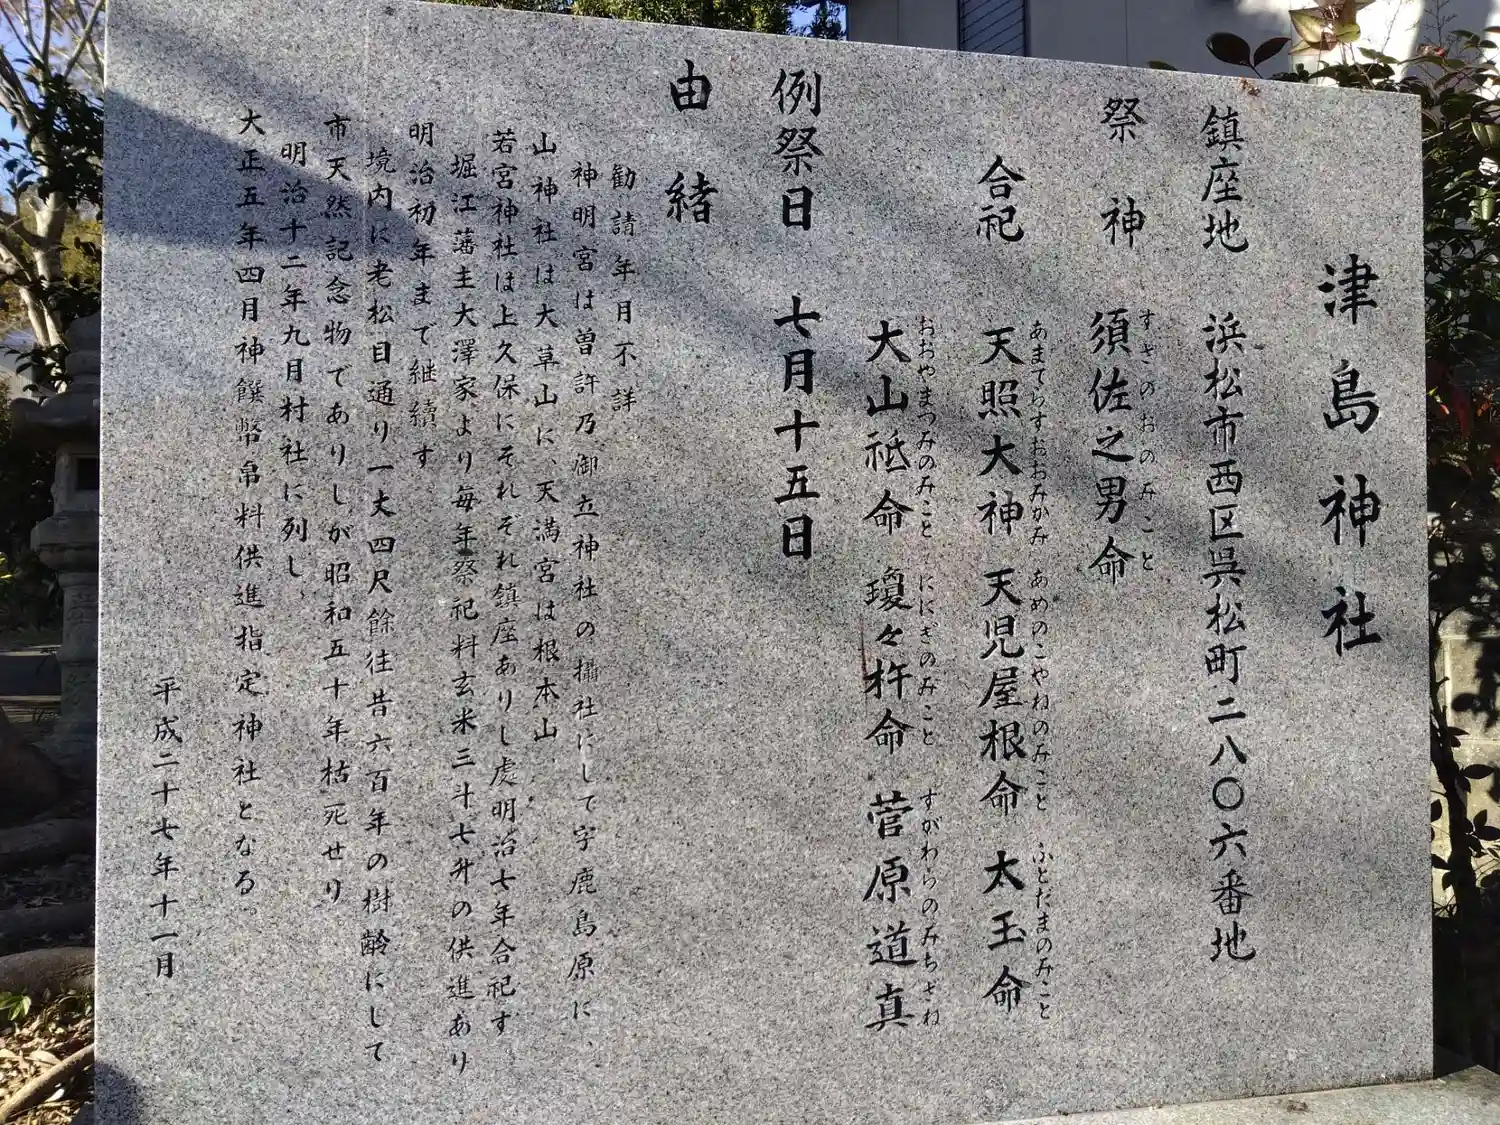 津島神社
鎮座地　浜松市西区呉松町二八〇六番地
祭神　須佐之男命
すさのおのみこと
合祀　天照大神　天児屋根命　太玉命
あまてらすおおみかみ　あめのこやねのみこと　ふとだまのみこと
大山祗命　瓊々杵命　菅原道真
おおやまつみのみこと　ににぎのみこと　すがわらのみちざね
例祭日　七月十五日
由緒
勧請年月不詳
神明宮は曽許乃御立神社の攝社にして字鹿島原に、
山神社は大草山に、天満宮は根本山
若宮神社は上久保にそれぞれ鎮座ありし處明治七年合祀す
堀江藩主大澤家より毎年祭祀料玄米三斗七升の供進あり
明治初年まで継続す
境内に老松目通り一丈四尺餘往昔六百年の樹齢にして
市天然記念物でありしが昭和五十年枯死せり
明治十二年九月村社に列し、
大正五年四月神饌幣帛料供進指定神社となる。
平成二十七年十一月